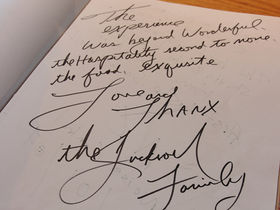 The
experience
was beyond wonderful.
the Hospitality second to none.
the food. exquisite
Love and
THANX
the
Family